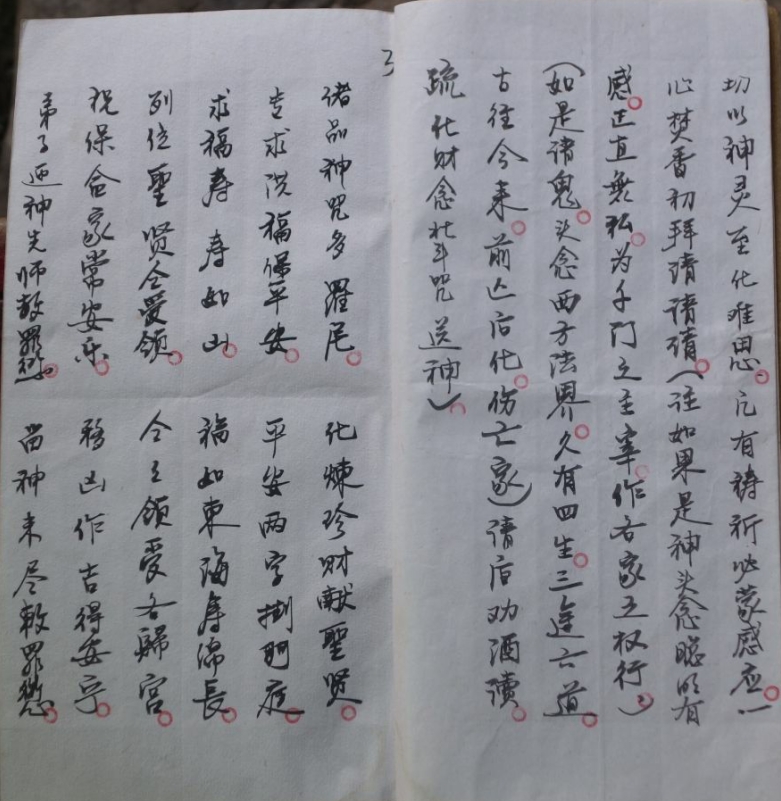 切以神灵至化难思。凡有祷祈必蒙感应。一
心焚香初拜请请請。(注如果是神头念聪明有
感。正直無私。为千门之主宰。作各家之权行。)
(如是诸鬼。头念西方法界。久有四生。三途六道。
古往今来。前亡后化。伤亡家)请后劝酒讀。
疏化财念北斗咒送神)。
3
诸品神咒多羅尼。 化煉珍财献聖贤。
专求洪福保平安。 平安两字掛門庭。
求福寿寿如山。 福如東海寿滿長。
列位聖贤今受领。 今主领受各歸宫。
祝保合家常安乐。 移凶作吉得安宁。
弟子迎神先师赦罪愆。 当神来尽赦罪愆。